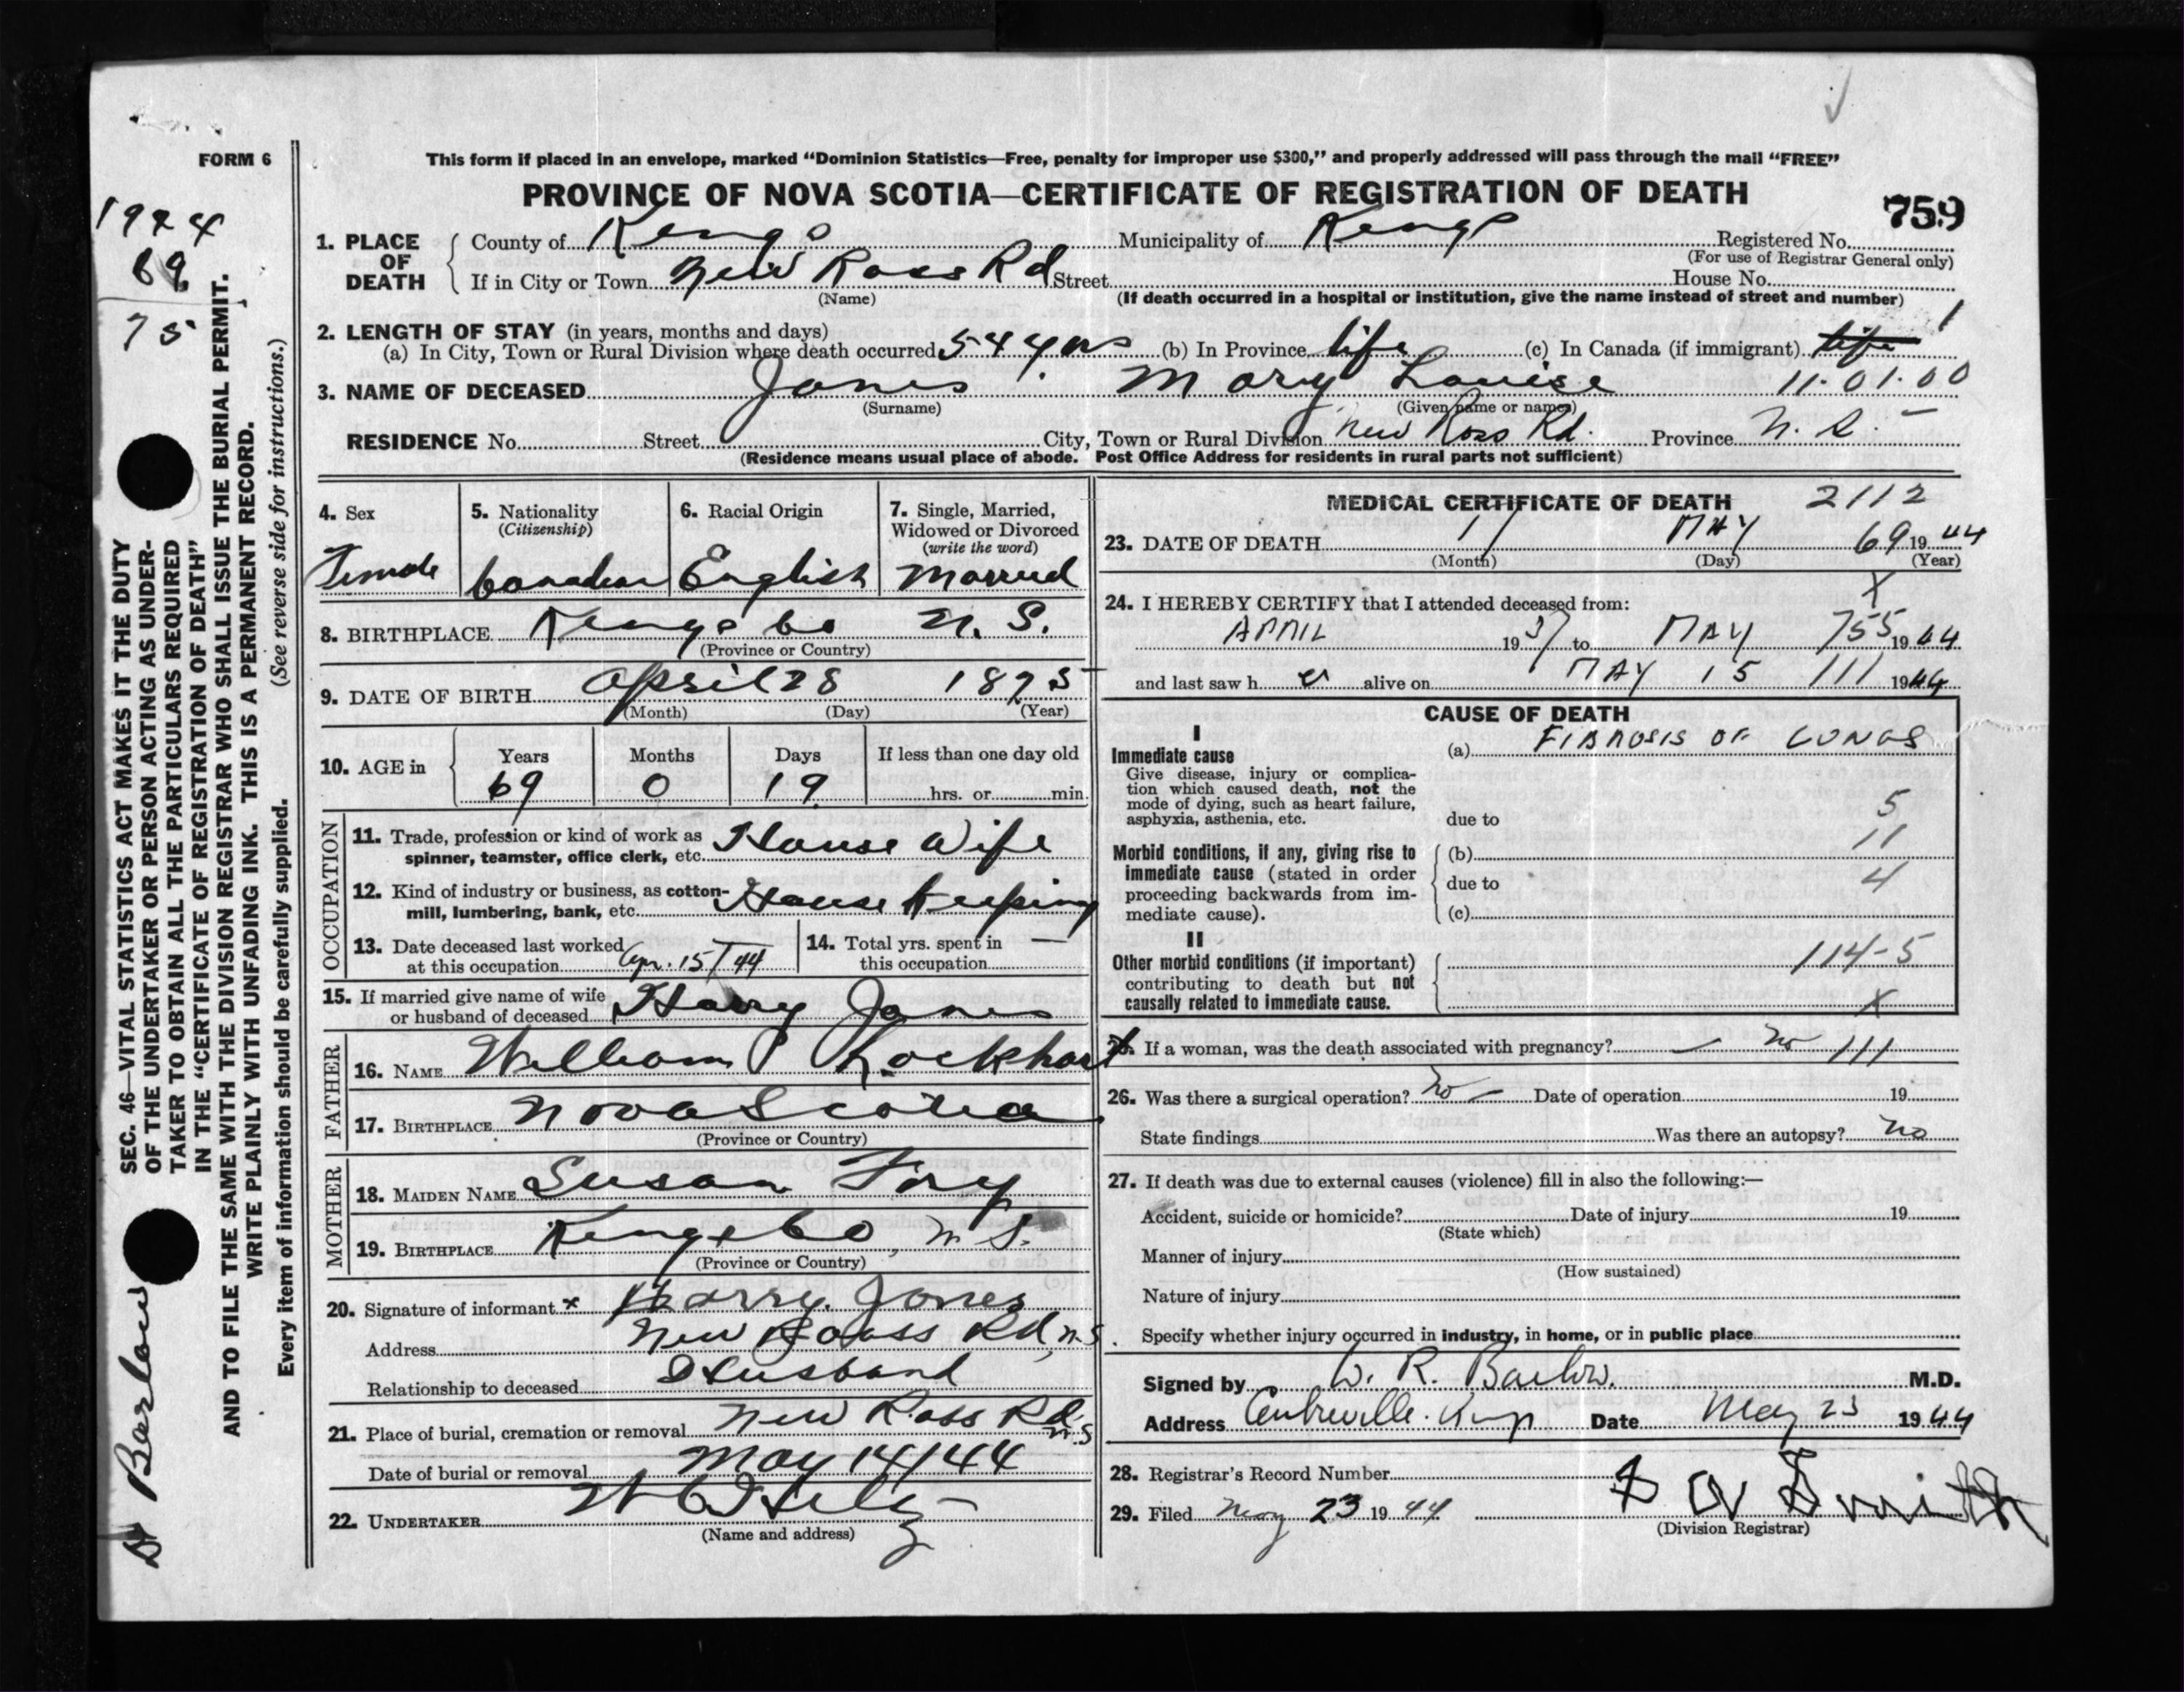 FORM 6
This form if placed in an envelope, marked "Dominion Statistics—Free, penalty for improper use $300," and properly addressed will pass through the mail "FREE"
PROVINCE OF NOVA SCOTIA—CERTIFICATE OF REGISTRATION OF DEATH
759
1. PLACE OF DEATH
County of Kings Municipality of Kings Registered No.
(For use of Registrar General only)
If in City or Town New Ross Rd Street House No.
(Name) (If death occurred in a hospital or institution, give the name instead of street and number)
1
2. LENGTH OF STAY (in years, months and days)
(a) In City, Town or Rural Division where death occurred 54 yrs (b) In Province life (c) In Canada (if immigrant) life
3. NAME OF DECEASED Jones Mary Louise 11.01.00
(Surname) (Given name or names)
RESIDENCE No. Street City, Town or Rural Division New Ross Rd. Province N. S.
(Residence means usual place of abode. Post Office Address for residents in rural parts not sufficient)
4. Sex
Female
5. Nationality
(Citizenship)
Canadian
6. Racial Origin
English
7. Single, Married,
Widowed or Divorced
(write the word)
Married
8. BIRTHPLACE Kings Co N. S.
(Province or Country)
9. DATE OF BIRTH April 28 1875
(Month) (Day) (Year)
10. AGE in
Years Months Days If less than one day old
69 0 19 hrs. or min.
OCCUPATION
11. Trade, profession or kind of work as
spinner, teamster, office clerk, etc. House Wife
12. Kind of industry or business, as cotton-
mill, lumbering, bank, etc. House Keeping
13. Date deceased last worked
at this occupation Apr. 15/44
14. Total yrs. spent in —
this occupation
15. If married give name of wife
or husband of deceased Harry Jones
FATHER
16. NAME William Lockhart
17. BIRTHPLACE Nova Scotia
(Province or Country)
MOTHER
18. MAIDEN NAME Susan
19. BIRTHPLACE Kings Co, N. S.
(Province or Country)
20. Signature of informant x Harry Jones
Address New Rooss Rd, N.S.
Relationship to deceased Husband
21. Place of burial, cremation or removal New Ross Rd. N.S
Date of burial or removal May 14/44
22. UNDERTAKER
(Name and address)
MEDICAL CERTIFICATE OF DEATH 2112
23. DATE OF DEATH 17 MAY 69 1944
(Month) (Day) (Year)
X
24. I HEREBY CERTIFY that I attended deceased from:
APRIL 1937 to MAY 755 1944
and last saw h er alive on MAY 15 111 1944
CAUSE OF DEATH
I
Immediate cause (a) FIBROSIS OF LUNGS
Give disease, injury or complica-
tion which caused death, not the
mode of dying, such as heart failure,
asphyxia, asthenia, etc.
due to 5
11
Morbid conditions, if any, giving rise to
immediate cause (stated in order
proceeding backwards from im-
mediate cause).
(b)
due to 4
(c)
II
Other morbid conditions (if important)
contributing to death but not
causally related to immediate cause.
114-5
X
25. If a woman, was the death associated with pregnancy? — no 111
26. Was there a surgical operation? no — Date of operation 19
State findings Was there an autopsy? no
27. If death was due to external causes (violence) fill in also the following:—
Accident, suicide or homicide? Date of injury 19
(State which)
Manner of injury
(How sustained)
Nature of injury
Specify whether injury occurred in industry, in home, or in public place
Signed by W. R. Barlow. M.D.
Address Centreville. Kings Date May 23 1944
28. Registrar's Record Number
29. Filed May 23 1944 Smith
(Division Registrar)
1944
69
75
SEC. 46—VITAL STATISTICS ACT MAKES IT THE DUTY
OF THE UNDERTAKER OR PERSON ACTING AS UNDER-
TAKER TO OBTAIN ALL THE PARTICULARS REQUIRED
IN THE "CERTIFICATE OF REGISTRATION OF DEATH"
AND TO FILE THE SAME WITH THE DIVISION REGISTRAR WHO SHALL ISSUE THE BURIAL PERMIT.
WRITE PLAINLY WITH UNFADING INK. THIS IS A PERMANENT RECORD.
Every item of information should be carefully supplied. (See reverse side for instructions.)
Dr Barlow